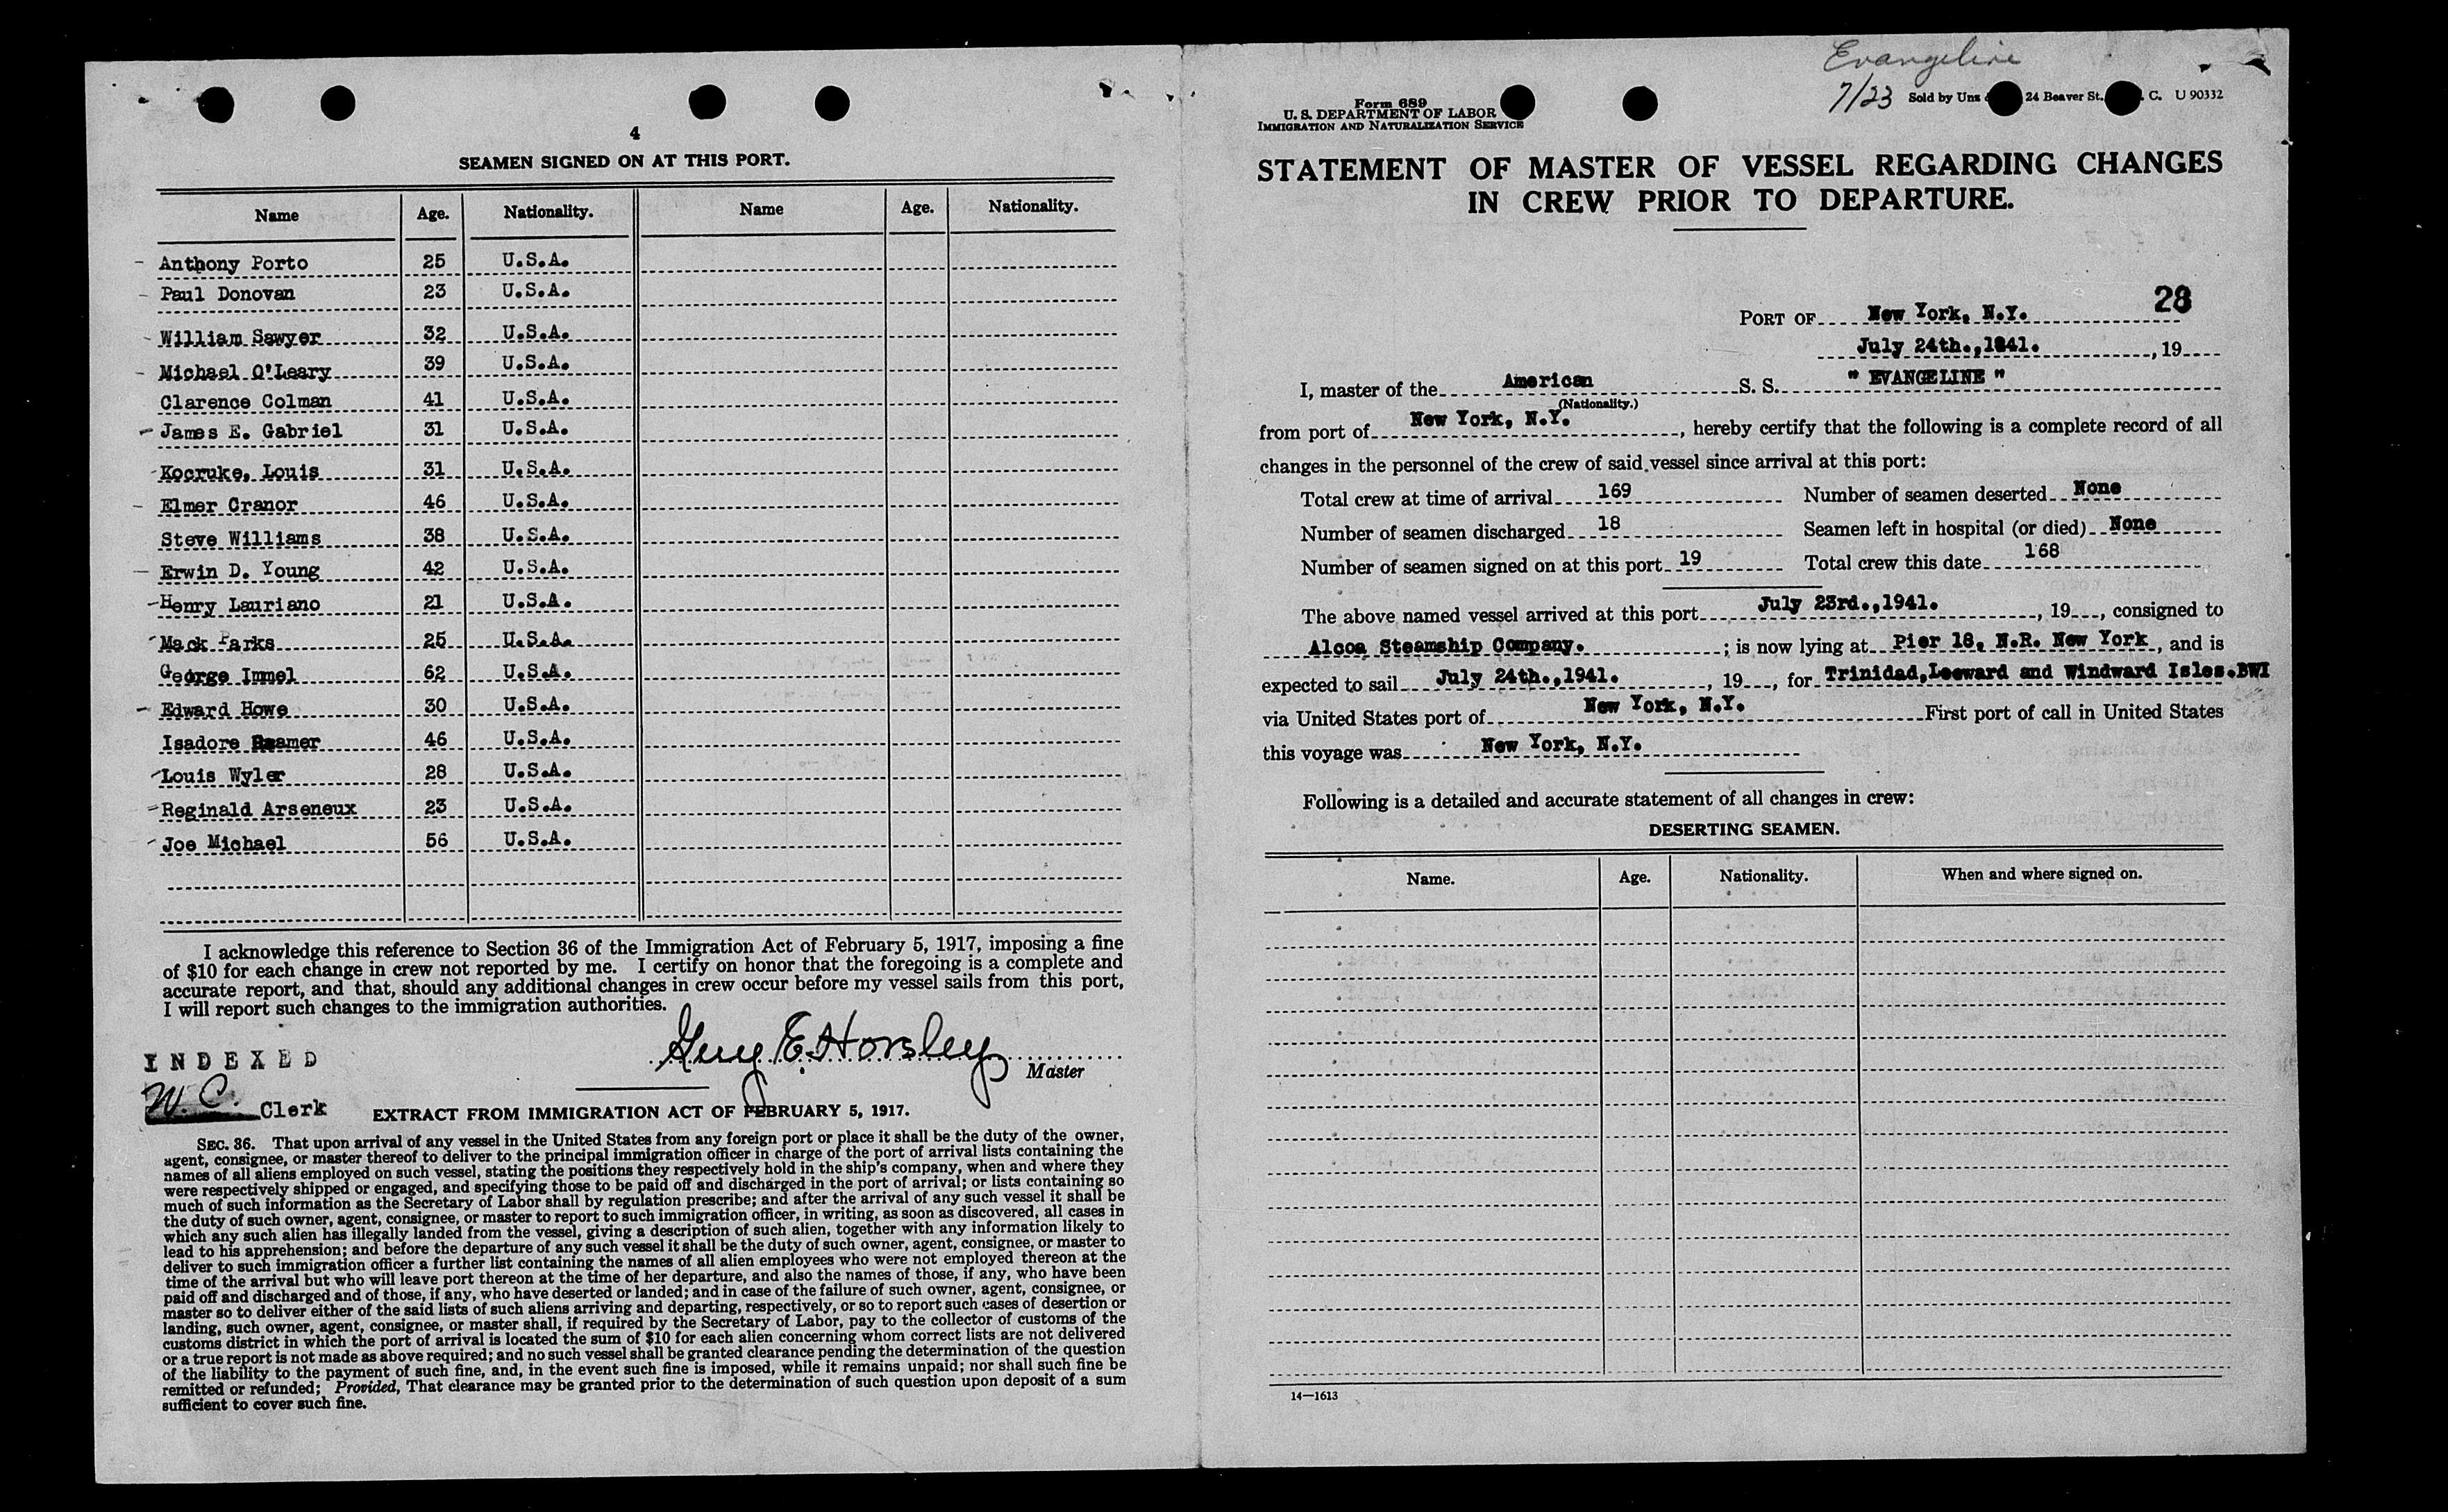 4
SEAMEN SIGNED ON AT THIS PORT.
Name Age. Nationality. Name Age. Nationality.
Anthony Porto 25 U.S.A.
Paul Donovan 23 U.S.A.
William Sawyer 32 U.S.A.
Michael O'Leary 39 U.S.A.
Clarence Colman 41 U.S.A.
James E. Gabriel 31 U.S.A.
Kocruke, Louis 31 U.S.A.
Elmer Cranor 46 U.S.A.
Steve Williams 38 U.S.A.
Erwin D. Young 42 U.S.A.
Henry Lauriano 21 U.S.A.
Mack Parks 25 U.S.A.
George Immel 62 U.S.A.
Edward Howe 30 U.S.A.
Isadore 46 U.S.A.
Louis Wyler 28 U.S.A.
Reginald Arseneux 23 U.S.A.
Joe Michael 56 U.S.A.
I acknowledge this reference to Section 36 of the Immigration Act of February 5, 1917, imposing a fine
of $10 for each change in crew not reported by me. I certify on honor that the foregoing is a complete and
accurate report, and that, should any additional changes in crew occur before my vessel sails from this port,
I will report such changes to the immigration authorities.
Guy E. Horsley
Master
INDEXED
W. C. Clerk
EXTRACT FROM IMMIGRATION ACT OF FEBRUARY 5, 1917.
SEC. 36. That upon arrival of any vessel in the United States from any foreign port or place it shall be the duty of the owner,
agent, consignee, or master thereof to deliver to the principal immigration officer in charge of the port of arrival lists containing the
names of all aliens employed on such vessel, stating the positions they respectively hold in the ship's company, when and where they
were respectively shipped or engaged, and specifying those to be paid off and discharged in the port of arrival; or lists containing so
much of such information as the Secretary of Labor shall by regulation prescribe; and after the arrival of any such vessel it shall be
the duty of such owner, agent, consignee, or master to report to such immigration officer, in writing, as soon as discovered, all cases in
which any such alien has illegally landed from the vessel, giving a description of such alien, together with any information likely to
lead to his apprehension; and before the departure of any such vessel it shall be the duty of such owner, agent, consignee, or master to
deliver to such immigration officer a further list containing the names of all alien employees who were not employed thereon at the
time of the arrival but who will leave port thereon at the time of her departure, and also the names of those, if any, who have been
paid off and discharged and of those, if any, who have deserted or landed; and in case of the failure of such owner, agent, consignee, or
master so to deliver either of the said lists of such aliens arriving and departing, respectively, or so to report such cases of desertion or
landing, such owner, agent, consignee, or master shall, if required by the Secretary of Labor, pay to the collector of customs of the
customs district in which the port of arrival is located the sum of $10 for each alien concerning whom correct lists are not delivered
or a true report is not made as above required; and no such vessel shall be granted clearance pending the determination of the question
of the liability to the payment of such fine, and, in the event such fine is imposed, while it remains unpaid; nor shall such fine be
remitted or refunded; Provided, That clearance may be granted prior to the determination of such question upon deposit of a sum
sufficient to cover such fine.
Evangeline
7/23 Sold by Unz 24 Beaver St. C. U 90332
Form 689
U. S. DEPARTMENT OF LABOR
IMMIGRATION AND NATURALIZATION SERVICE
STATEMENT OF MASTER OF VESSEL REGARDING CHANGES
IN CREW PRIOR TO DEPARTURE.
28
PORT OF New York, N.Y.
July 24th.,1941. , 19
I, master of the American S. S. " EVANGELINE "
(Nationality.)
from port of New York, N.Y. , hereby certify that the following is a complete record of all
changes in the personnel of the crew of said vessel since arrival at this port:
Total crew at time of arrival 169 Number of seamen deserted None
Number of seamen discharged 18 Seamen left in hospital (or died) None
Number of seamen signed on at this port 19 Total crew this date 168
The above named vessel arrived at this port July 23rd.,1941. , 19 , consigned to
Alcoa Steamship Company. ; is now lying at Pier 18, N.R. New York , and is
expected to sail July 24th.,1941. , 19 , for Trinidad,Leeward and Windward Isles.BWI
via United States port of New York, N.Y. First port of call in United States
this voyage was New York, N.Y.
Following is a detailed and accurate statement of all changes in crew:
DESERTING SEAMEN.
Name. Age. Nationality. When and where signed on.
14—1613